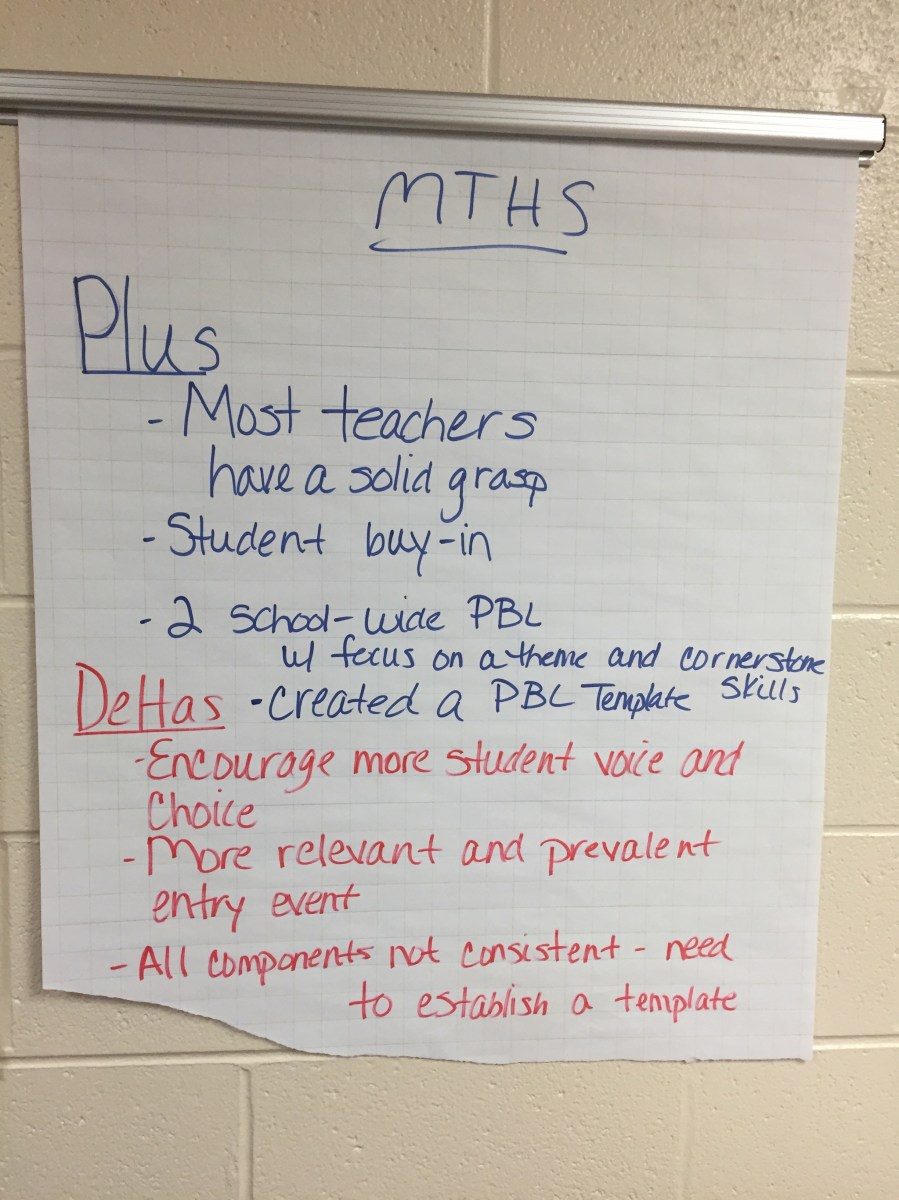 MTHS
Plus
- Most teachers
have a solid grasp
- Student buy-in
- 2 school-wide PBL
w/ focus on a theme and cornerstone
skills
Deltas - Created a PBL Template
- Encourage more student voice and
Choice
- More relevant and prevalent
entry event
- All components not consistent - need
to establish a template